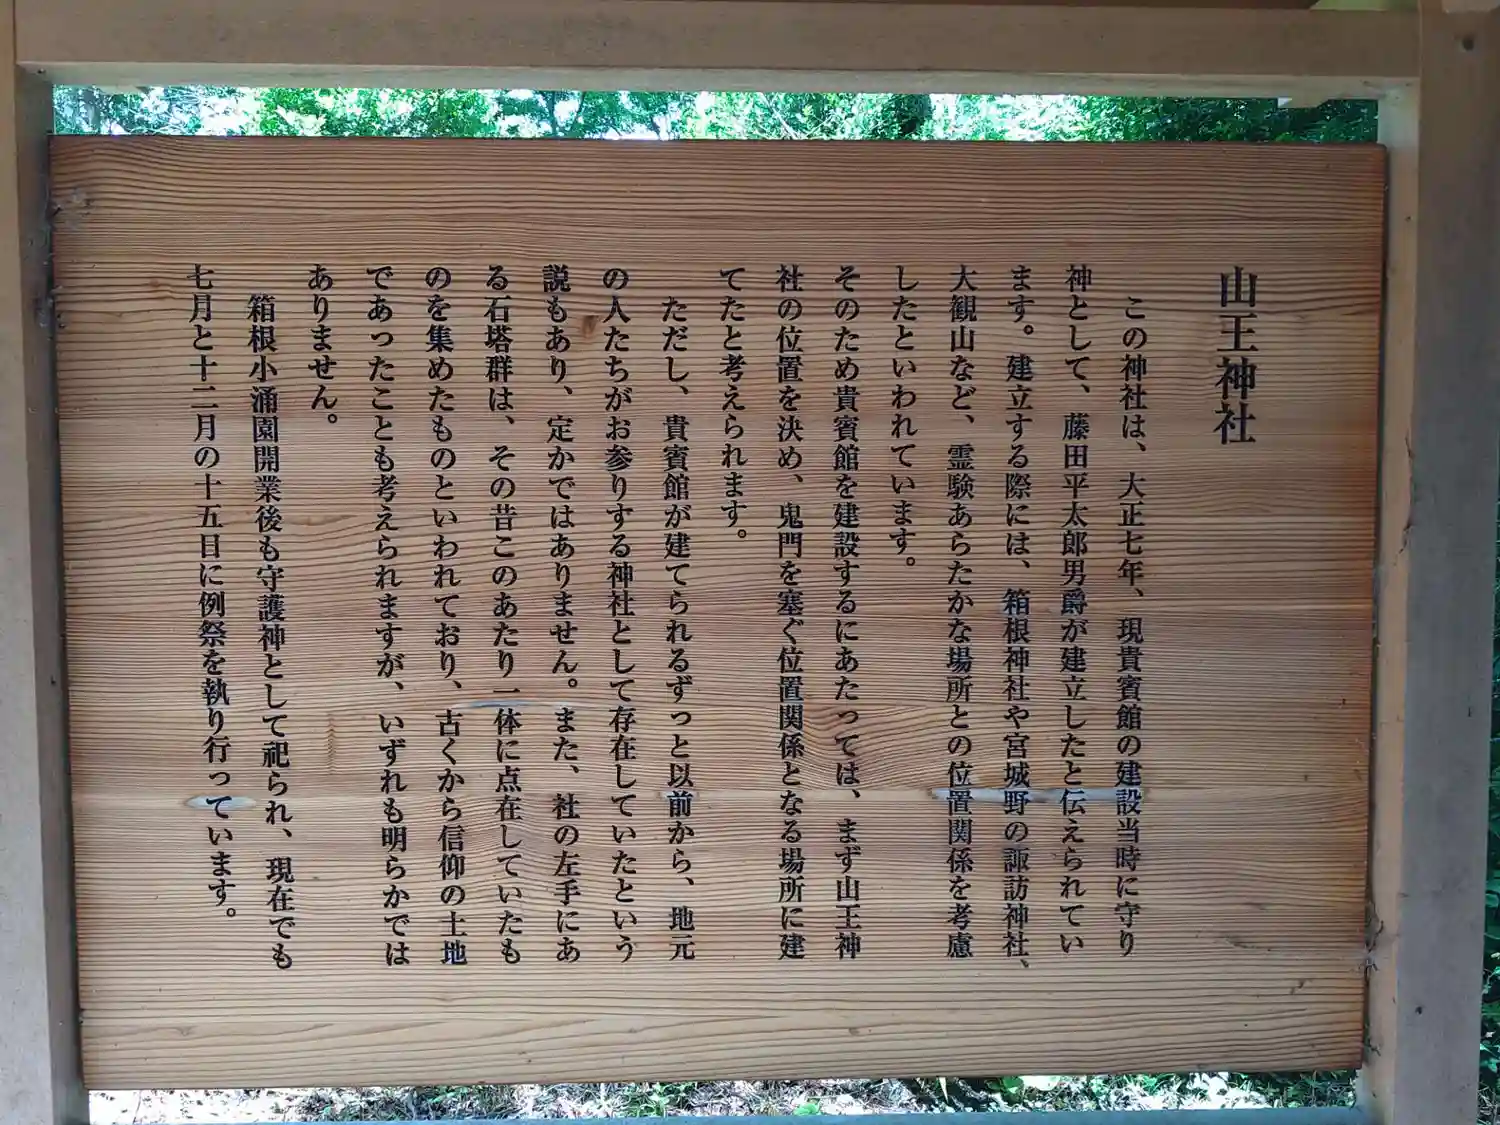 山王神社
この神社は、大正七年、現貴賓館の建設当時に守り
神として、藤田平太郎男爵が建立したと伝えられてい
ます。建立する際には、箱根神社や宮城野の諏訪神社、
大観山など、霊験あらたかな場所との位置関係を考慮
したといわれています。
そのため貴賓館を建設するにあたっては、まず山王神
社の位置を決め、鬼門を塞ぐ位置関係となる場所に建
てたと考えられます。
ただし、貴賓館が建てられるずっと以前から、地元
の人たちがお参りする神社として存在していたという
説もあり、定かではありません。また、社の左手にあ
る石塔群は、その昔このあたり一体に点在していたも
のを集めたものといわれており、古くから信仰の土地
であったことも考えられますが、いずれも明らかでは
ありません。
箱根小涌園開業後も守護神として祀られ、現在でも
七月と十二月の十五日に例祭を執り行っています。